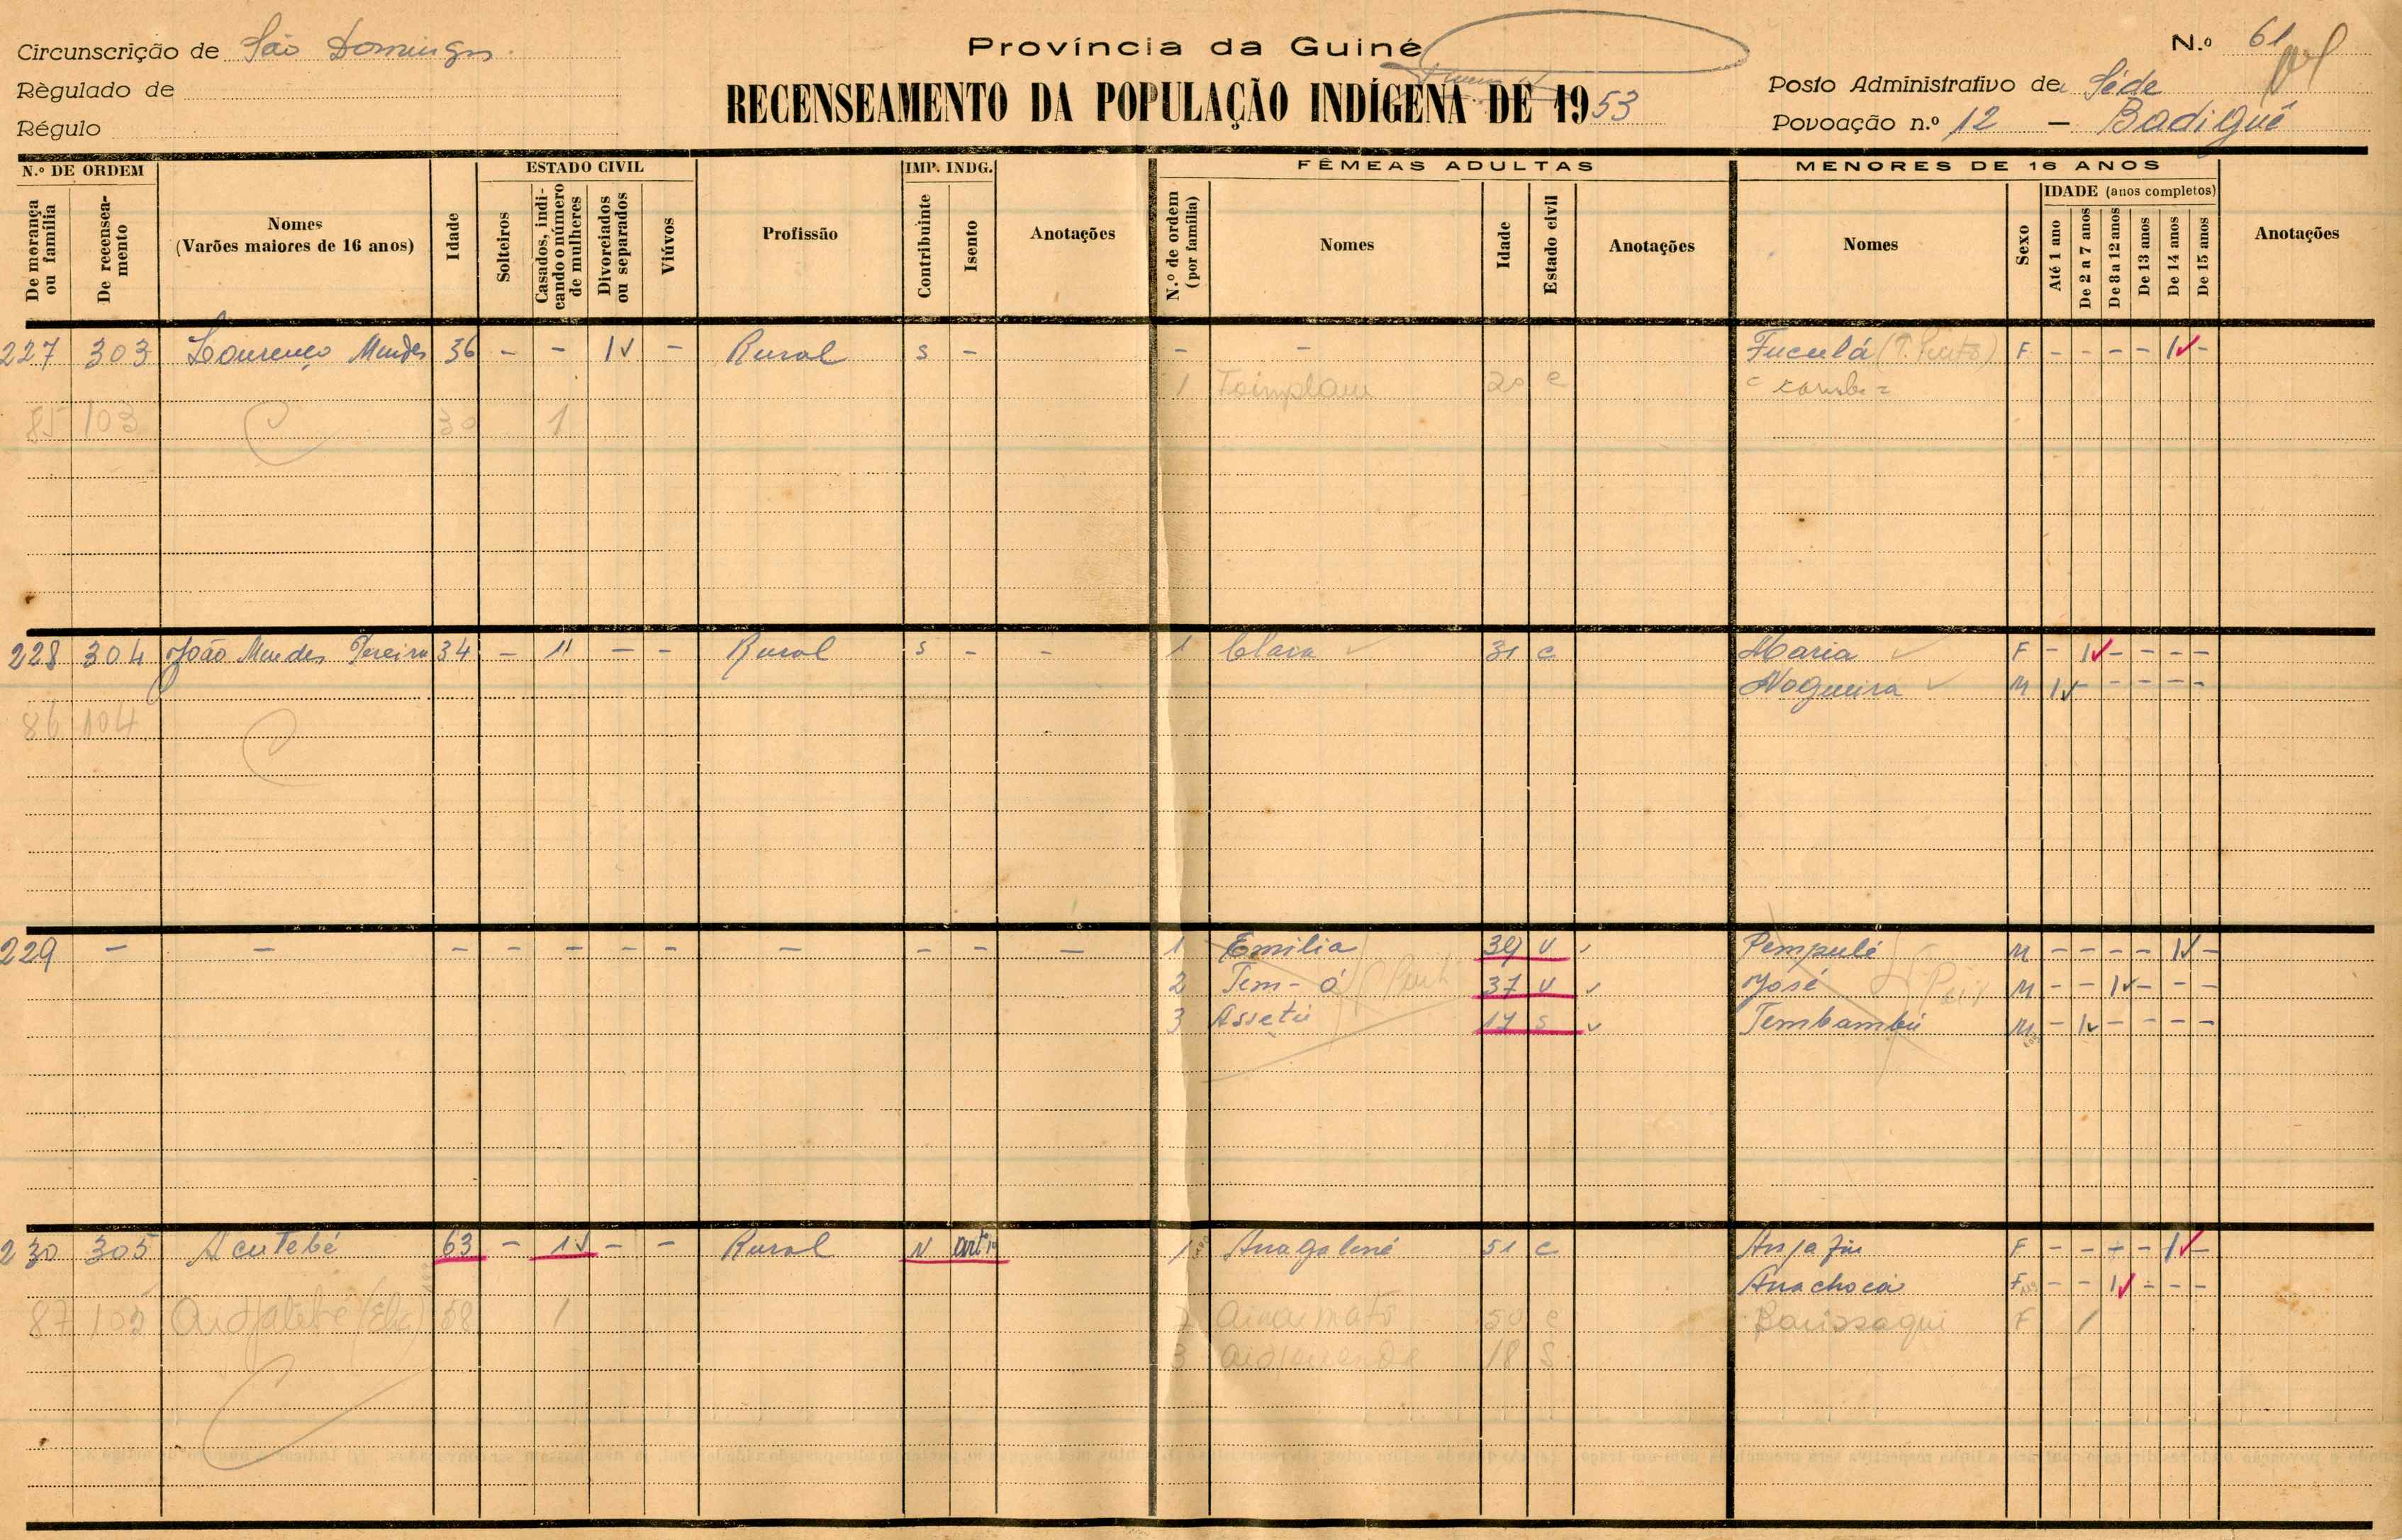 Circunscrição de São Domingos
Règulado de
Régulo
Província da Guiné
RECENSEAMENTO DA POPULAÇÃO INDÍGENA DE 1953
N.º 61
Posto Administrativo de Séde
Povoação n.º 12 — Badigué
N.º DE ORDEM
De morança ou família
De recenseamento
Nomes
(Varões maiores de 16 anos)
Idade
ESTADO CIVIL
Solteiros
Casados, indicando o número de mulheres
Divorciados ou separados
Viúvos
Profissão
IMP. INDG.
Contribuinte
Isento
Anotações
FÊMEAS ADULTAS
N.º de ordem (por família)
Nomes
Idade
Estado civil
Anotações
MENORES DE 16 ANOS
Nomes
Sexo
IDADE (anos completos)
Até 1 ano
De 2 a 7 anos
De 8 a 12 anos
De 13 anos
De 14 anos
De 15 anos
Anotações
227 303 Lourenço Mendes 36 - - 1 - Rural S - - - Fuculá F - - - - 1 -
1 Toimplam 20 c
85 103 30 1
228 304 João Mendes Pereira 34 - 1 - - Rural S - - 1 Clara 31 c Maria F - 1 - - - -
Nogueira M 1 - - - - -
86 104
229 - - - - - - - - - - - 1 Emilia 39 v Pempulé M - - - - 1 -
2 Tem-ó 37 v José M - - 1 - - -
3 Assetú 17 s Tembambú M - 1 - - - -
230 305 Acutebé 63 - 1 - - Rural N 1 Anagalené 51 c F - - - - 1 -
Anachocá F - - 1 - - -
87 105 58 1 2 50 c Barissaqui F 1
3 18 S